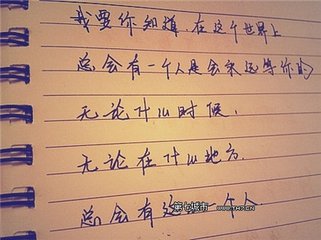 我要你知道 在这个世界上
总会有一个人是会永远等你的
无论什么时候.
无论在什么地方.
总会有这一个人
第七城市 WWW.TH7.CN